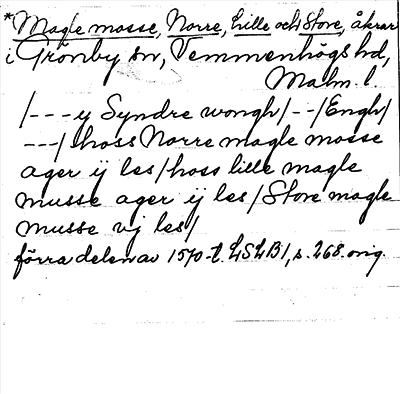 *Magle mosse, Norre, Lille och Store, åkrar
i Grönby sn, Vemmenhögs hd,
Malm. l.
/---y Syndre wongh/--/Engh/
---/hoss Norre magle mosse
ager ij les/hoss lille magle
musse ager ij les/Store magle
musse vj les/
förra delen av 1570-t. LSLB1, s. 268. orig.